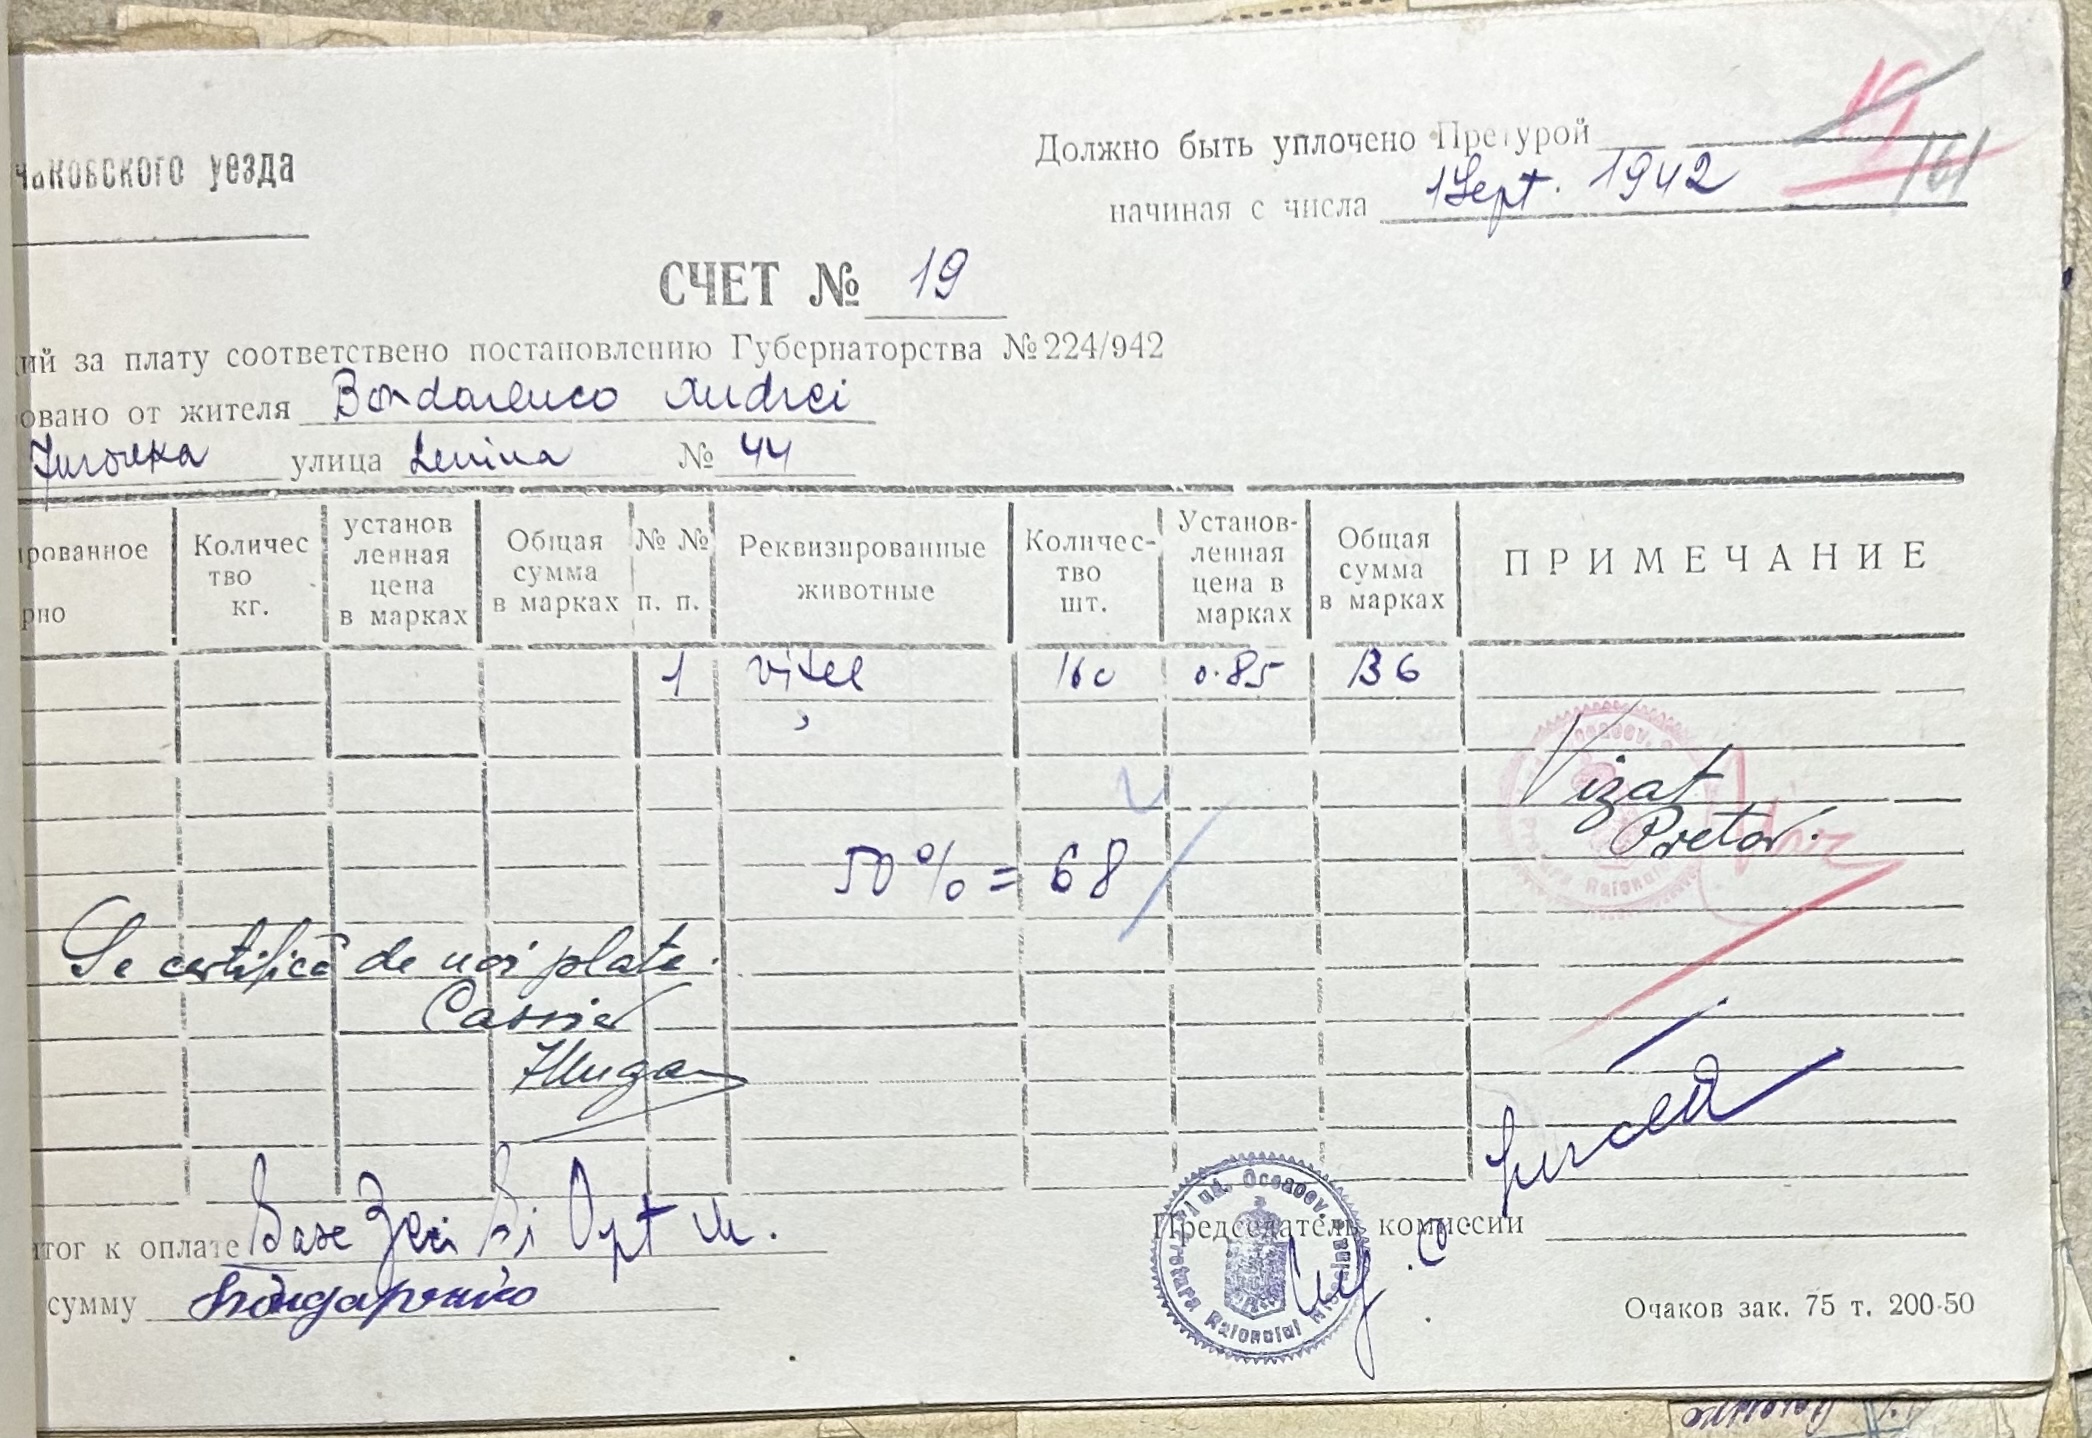 чаковского уезда
Должно быть уплочено Претурой
19
161
начиная с числа 1 Sept. 1942
СЧЕТ № 19
ий за плату соответствено постановлению Губернаторства № 224/942
овано от жителя Bondarenco Andrei
улица Lenina № 44
ированное
рно
Количес
тво
кг.
установ
ленная
цена
в марках
Общая
сумма
в марках
№ №
п. п.
Реквизированные
животные
Количес-
тво
шт.
Установ-
ленная
цена в
марках
Общая
сумма
в марках
ПРИМЕЧАНИЕ
1 vițel 160 0.85 136
Vizat
Pretor.
50% = 68
Se certifică de noi plata.
Cassier
итог к оплате Șase Zeci și Opt M.
сумму
Председатель комиссии
Pretura Raionului Jud. Oceacov
Очаков зак. 75 т. 200-50